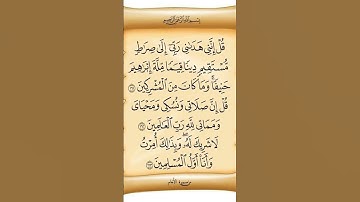 بِسْمِ اللَّهِ الرَّحْمَٰنِ الرَّحِيمِ
قُلْ إِنَّنِي هَدَىٰنِي رَبِّي إِلَىٰ صِرَٰطٍ
مُّسْتَقِيمٍ دِينًا قِيَمًا مِّلَّةَ إِبْرَٰهِيمَ
حَنِيفًا ۚ وَمَا كَانَ مِنَ الْمُشْرِكِينَ ١٦١
قُلْ إِنَّ صَلَاتِي وَنُسُكِي وَمَحْيَايَ
وَمَمَاتِي لِلَّهِ رَبِّ الْعَٰلَمِينَ ١٦٢
لَا شَرِيكَ لَهُ ۖ وَبِذَٰلِكَ أُمِرْتُ
وَأَنَا أَوَّلُ الْمُسْلِمِينَ ١٦٣
سورة الأنعام